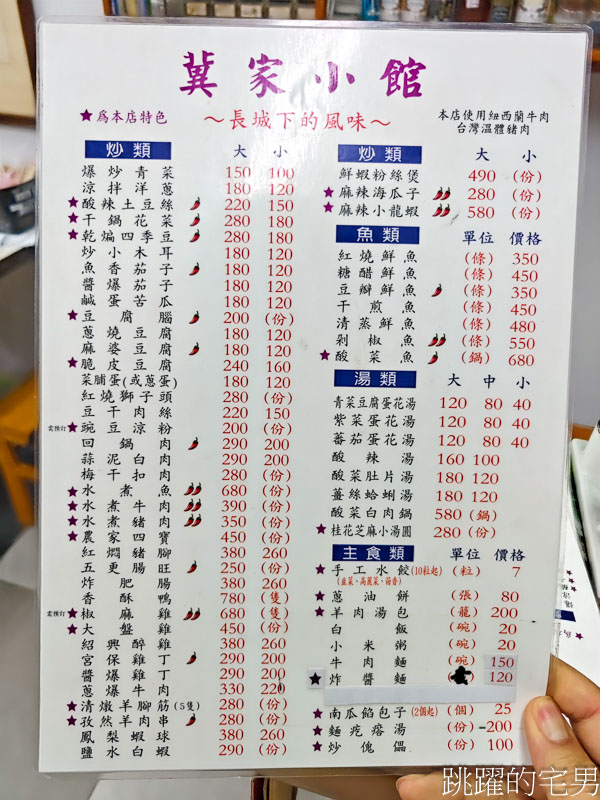 冀家小館
★為本店特色
～長城下的風味～
本店使用紐西蘭牛肉
台灣溫體豬肉
炒類 大 小
爆炒青菜 150 100
涼拌洋蔥 180 120
★酸辣土豆絲 220 150
★干鍋花菜 280 180
★乾煸四季豆 280 180
炒小木耳 180 120
魚香茄子 180 120
醬爆茄子 180 120
鹹蛋苦瓜 180 120
★豆腐腦 200 (份)
蔥燒豆腐 180 120
麻婆豆腐 180 120
★脆皮豆腐 240 160
菜脯蛋(或蔥蛋) 180 120
紅燒獅子頭 280 (份)
豆干肉絲 220 150
需預訂★豌豆涼粉 200 (份)
回鍋肉 290 200
蒜泥白肉 290 200
梅干扣肉 280 (份)
★水煮魚 680 (份)
★水煮牛肉 390 (份)
★水煮豬肉 350 (份)
★農家四寶 450 (份)
紅燜豬腳 380 260
五更腸旺 250 (份)
炸肥腸 380 260
香酥鴨 780 (隻)
需預訂★椒麻雞 680 (隻)
★大盤雞 450 (份)
紹興醉雞 380 260
宮保雞丁 290 200
醬爆雞丁 290 200
蔥爆牛肉 330 220
★清燉羊腳筋(5隻) 280 (份)
★孜然羊肉串 280 (份)
鳳梨蝦球 380 260
鹽水白蝦 290 (份)
炒類 大 小
鮮蝦粉絲煲 490 (份)
★麻辣海瓜子 280 (份)
★麻辣小龍蝦 580 (份)
魚類 單位 價格
紅燒鮮魚 (條) 350
糖醋鮮魚 (條) 450
豆瓣鮮魚 (條) 350
干煎魚 (條) 450
清蒸鮮魚 (條) 480
剁椒魚 (條) 550
★酸菜魚 (鍋) 680
湯類 大 中 小
青菜豆腐蛋花湯 120 80 40
紫菜蛋花湯 120 80 40
蕃茄蛋花湯 120 80 40
酸辣湯 160 100
酸菜肚片湯 180 120
薑絲蛤蜊湯 180 120
酸菜白肉鍋 580 (鍋)
★桂花芝麻小湯圓 280 (份)
主食類 單位 價格
★手工水餃(10粒起) (粒) 7
(韭菜、高麗菜、茴香)
★蔥油餅 (張) 80
★羊肉湯包 (籠) 200
白飯 (碗) 20
小米粥 (碗) 20
牛肉麵 (碗) 150
★炸醬麵 120
★南瓜餡包子(2個起) (個) 25
★麵疙瘩湯 (份) 200
★炒傀儡 (份) 100
跳躍的宅男